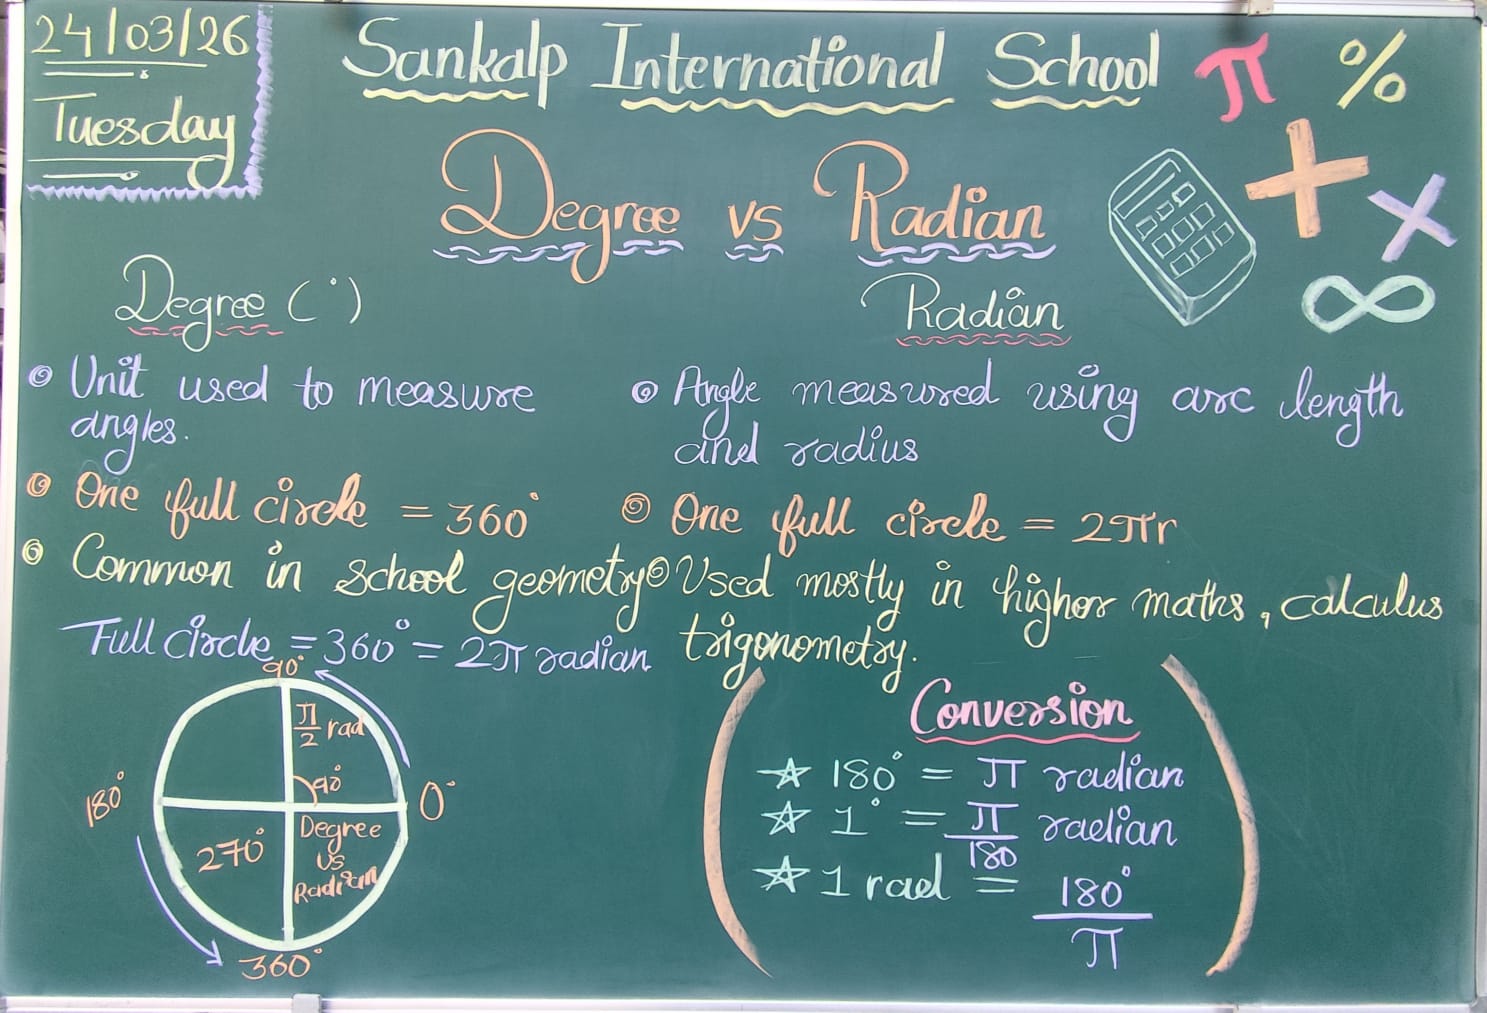 24/03/26
Tuesday
Sankalp International School
π %
+ ×
∞
Degree vs Radian
Degree (°)
Unit used to measure
angles.
One full circle = 360°
Common in school geometry
Full circle = 360° = 2π radian
Radian
Angle measured using arc length
and radius
One full circle = 2πr
Used mostly in higher maths, calculus
trigonometry.
90°
π/2 rad
90°
180°
0°
270°
Degree
vs
Radian
360°
Conversion
☆ 180° = π radian
☆ 1° = π/180 radian
☆ 1 rad = 180°/π